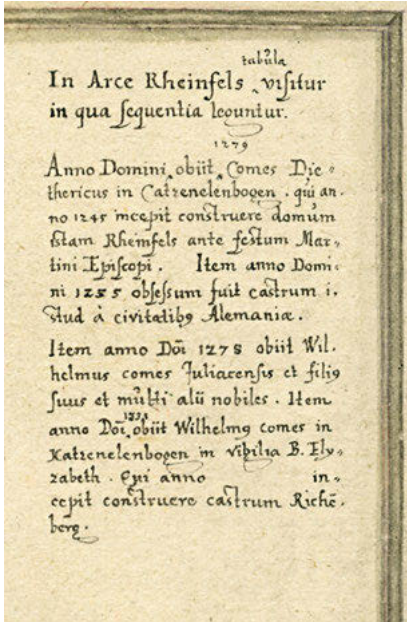 tabula
In Arce Rheinfels ‸ visitur
in qua sequentia leguntur.
1279
Anno Domini ‸ obiit Comes Die=
thericus in Catzenelenbogen. qui an.
no 1245 incepit construere domum
istam Rheinfels ante festum Mar=
tini Episcopi. Item anno Domi=
ni 1255 obsessum fuit castrum i.
stud à civitatibꝫ Alemaniæ.
Item anno Doi 1278 obiit Wil.
helmus comes Juliacensis et filiꝯ
suus et multi alii nobiles. Item
anno Doi ‸ obiit Wilhelmꝯ comes in
Katzenelenbogen in vigilia B. Ely=
zabeth. Qui anno in=
cepit construere castrum Richē.
berg.